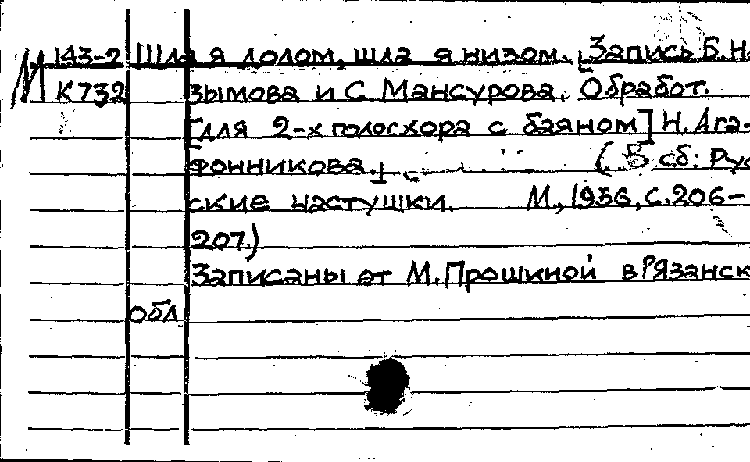 М 143-2 Шла я долом, шла я низом. [Запись Б.Н.
К 732 зымова и С. Мансурова. Обработ.
[для 2-х голосхора с баяном] Н. Ага-
фонникова.] (В сб: Рус
ские частушки. М., 1956, С. 206-
207.)
Записаны от М. Прошкиной в Рязанск
обл